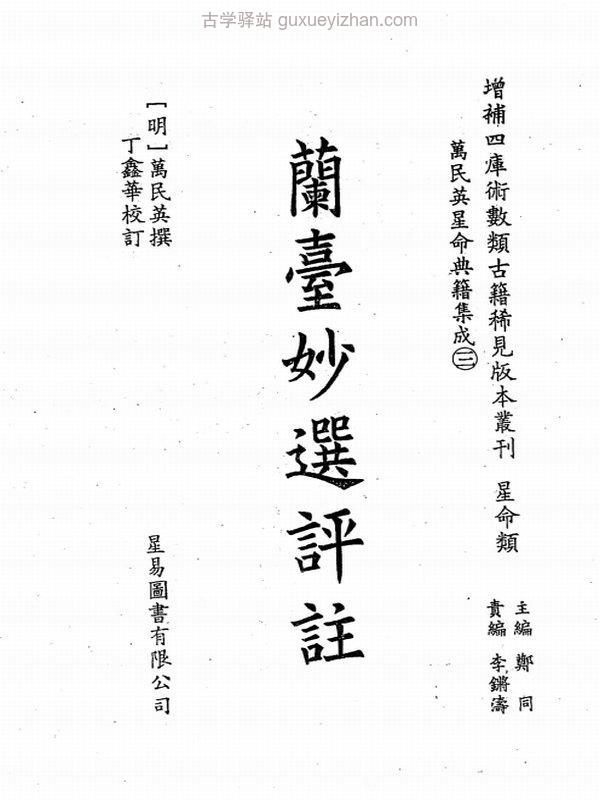 古学驿站 guxueyizhan.com
增補四庫術數類古籍稀見版本叢刊 星命類
萬民英星命典籍集成㊂
主編 鄭同
責編 李鏘濤
蘭臺妙選評註
[明]萬民英撰
丁鑫華校訂
星易圖書有限公司